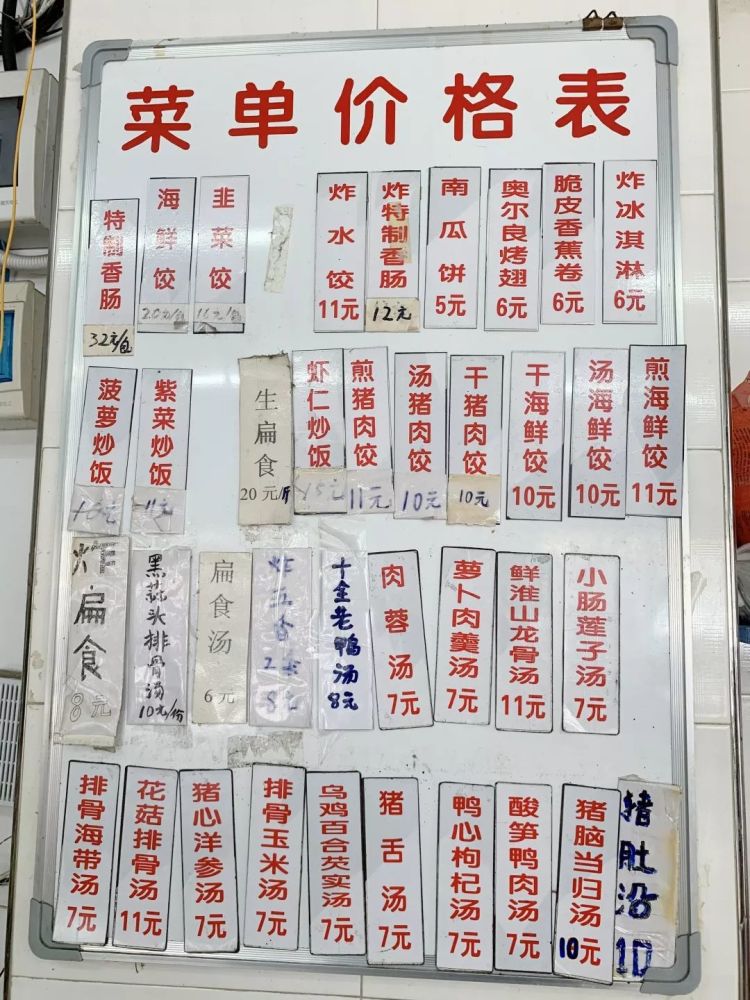 菜单价格表
特制香肠
32元/包
海鲜饺
20元/包
韭菜饺
炸水饺
11元
炸特制香肠
12元
南瓜饼
5元
奥尔良烤翅
6元
脆皮香蕉卷
6元
炸冰淇淋
6元
菠萝炒饭
紫菜炒饭
11元
生扁食
20元/斤
虾仁炒饭
15元
煎猪肉饺
11元
汤猪肉饺
10元
干猪肉饺
10元
干海鲜饺
10元
汤海鲜饺
10元
煎海鲜饺
11元
炸扁食
8元
黑蒜头排骨汤
10元/份
扁食汤
6元
炸五香
8元
十全老鸭汤
8元
肉蓉汤
7元
萝卜肉羹汤
7元
鲜淮山龙骨汤
11元
小肠莲子汤
7元
排骨海带汤
7元
花菇排骨汤
11元
猪心洋参汤
7元
排骨玉米汤
7元
乌鸡百合芡实汤
7元
猪舌汤
7元
鸭心枸杞汤
7元
酸笋鸭肉汤
7元
猪脑当归汤
10元
猪肚沿
10